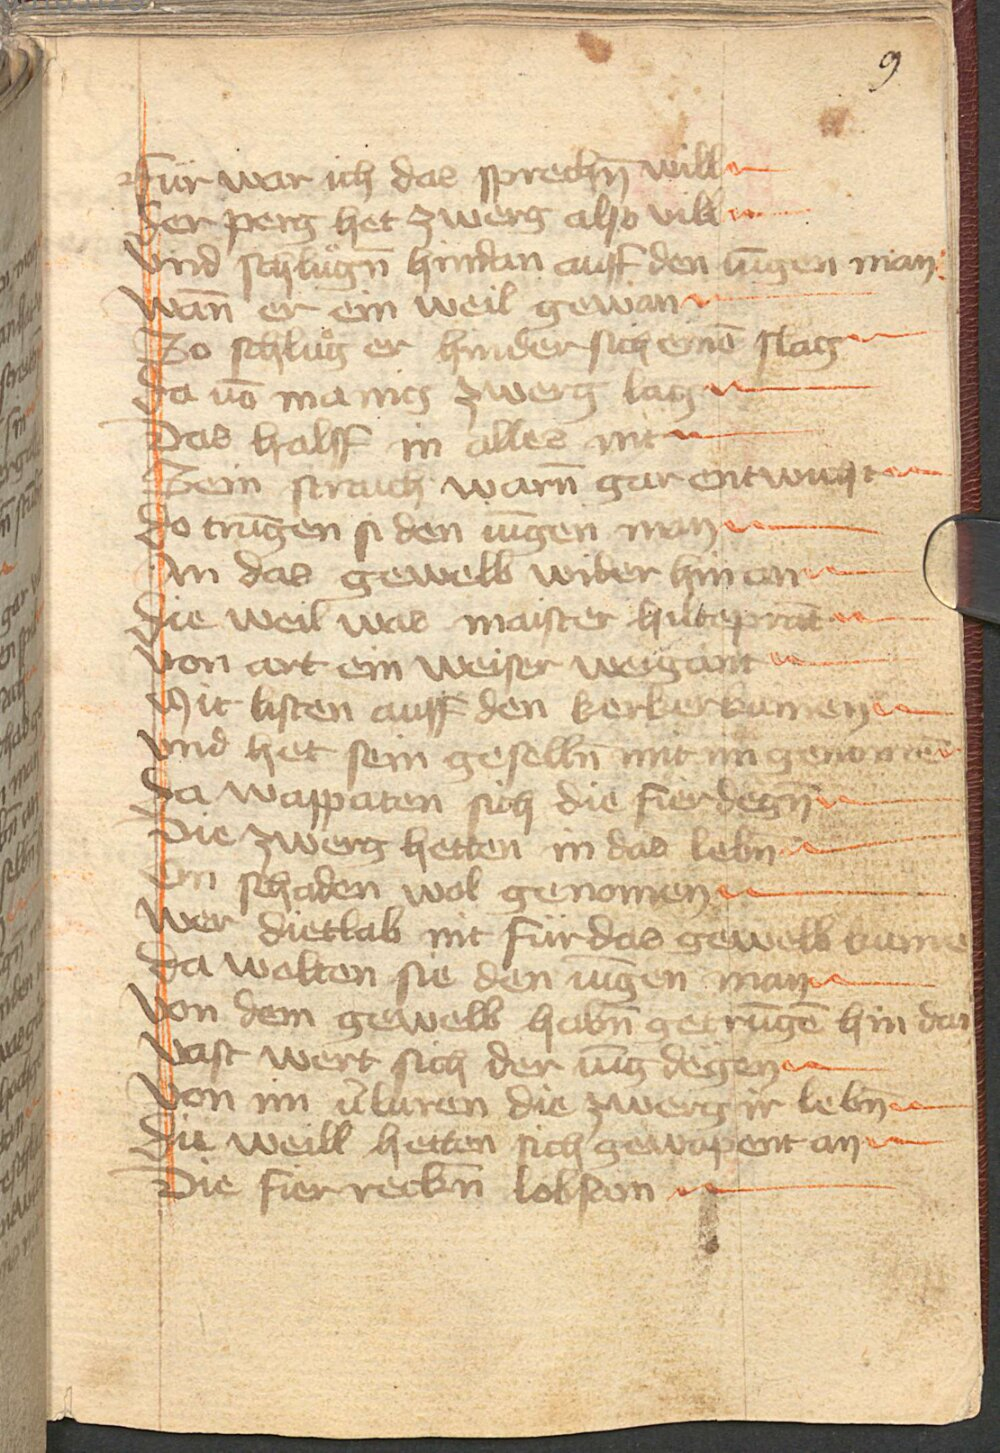 9
Für war ich das sprechn̄ will
Der perg het zwerg also vill
Vnd schlugn̄ hindan auff den iūgen man
Wan̄ er ein weil gewan
So schlug er hinder sich einē slag
Da vō manig zwerg lag
Das halff in alles nit
Sein streich warn̄ gar entwicht
Do trūgen si den iūgen man
An das gewelb wider hin an
Die weil was maister hilteprāt
Von art ein weiser weigant
Mit listen auff den kerker kumen
Vnd het sein geselln̄ mit im genomē
Da wappaten sich die fier degn̄
Die zwerg hetten in das lebn̄
Ein schaden wol genomen
Wer dietlab nit für das gewelb kume
Da wolten sie den iūgen man
Von dem gewelb habn̄ getrūgē hin dan
Vast wert sich der iūg degen
Von im v̄luren die zwerg ir lebn̄
Die weill hetten sich gewapent an
Die fier reckn̄ lobsam